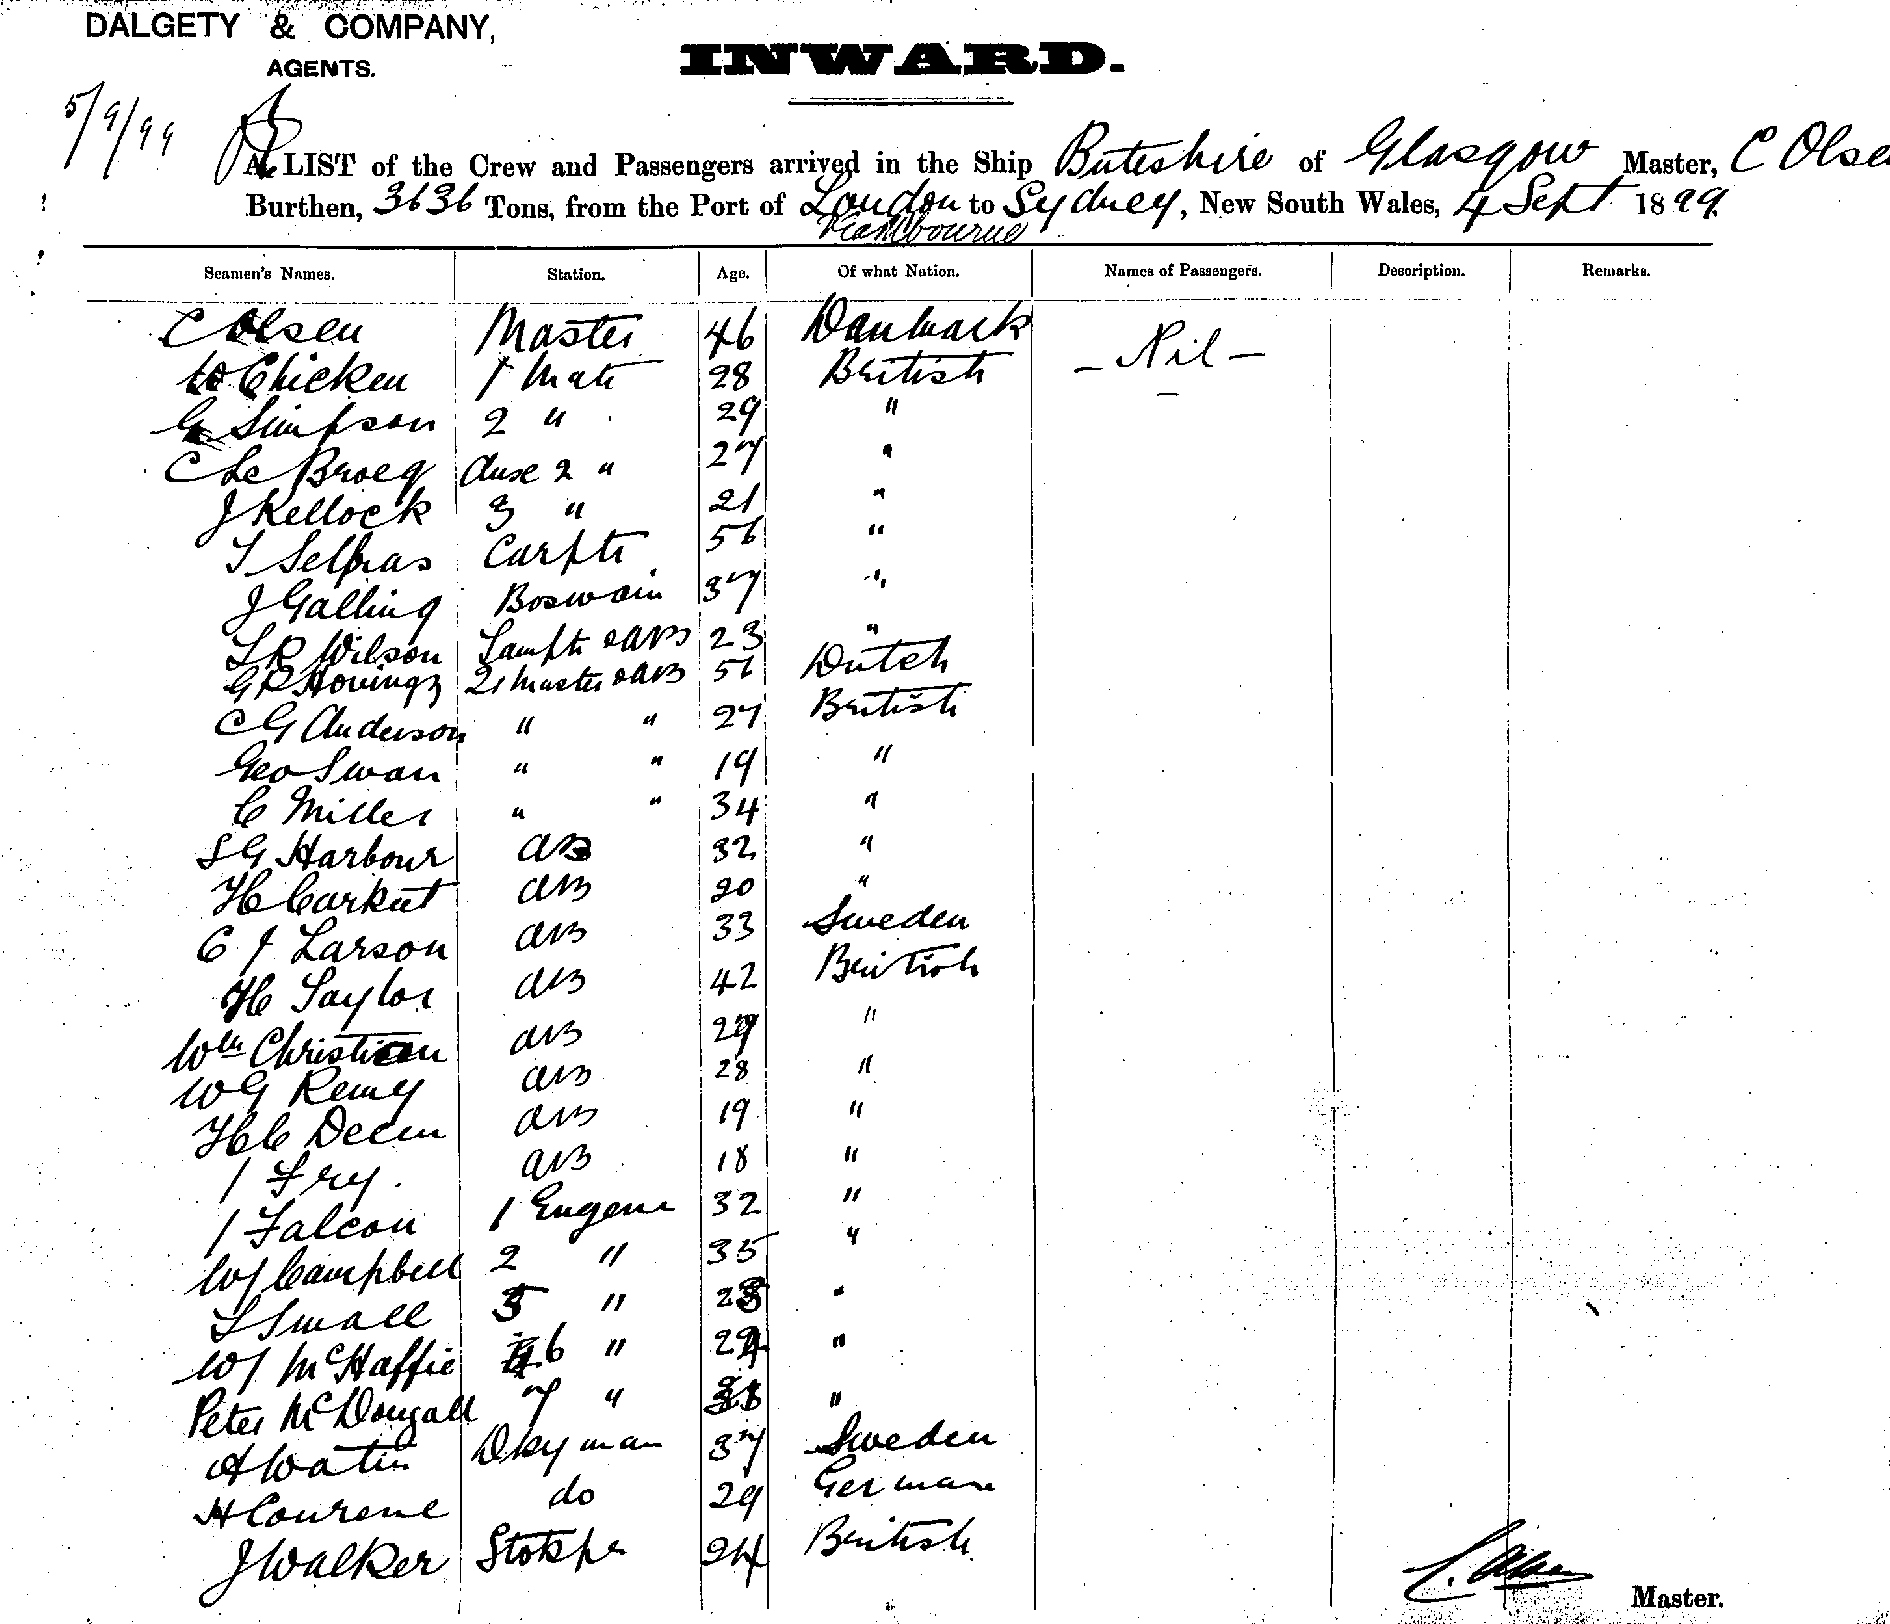 DALGETY & COMPANY,
AGENTS.
INWARD.
5/9/99
A LIST of the Crew and Passengers arrived in the Ship Buteshire of Glasgow Master, C Olsen
Burthen, 3636 Tons, from the Port of London to Sydney, New South Wales, 4 Sept 1899.
Seamen's Names. Station. Age. Of what Nation. Names of Passengers. Description. Remarks.
C Olsen Master 46 Danmark - Nil -
W Chicken 1 Mate 28 British
G Simpson 2 " 29 "
C Le Brocq 2 " 27 "
J Kellock 3 " 21 "
Carptr 56 "
J Galling Boswain 37 "
Wilson Lamptr & AB 23 "
G R Hovingz Qr Master & AB 51 Dutch
C G Anderson " " 27 British
Geo Swan " " 19 "
C Miller " " 34 "
S G Harbour AB 32 "
H Carkut AB 20 "
C J Larson AB 33 Sweden
H Taylor AB 42 British
Wm Christian AB "
W G Remy AB 28 "
AB 19 "
J Fry. AB 18 "
J Falcon 1 Engene 32 "
W J Campbell 2 " 35 "
S Small "
W J McHaffie 6 " "
Peter McDougall 7 " "
Dkyman 37 Sweden
H do 29 German
J Walker 24 British
C. Olsen
Master.